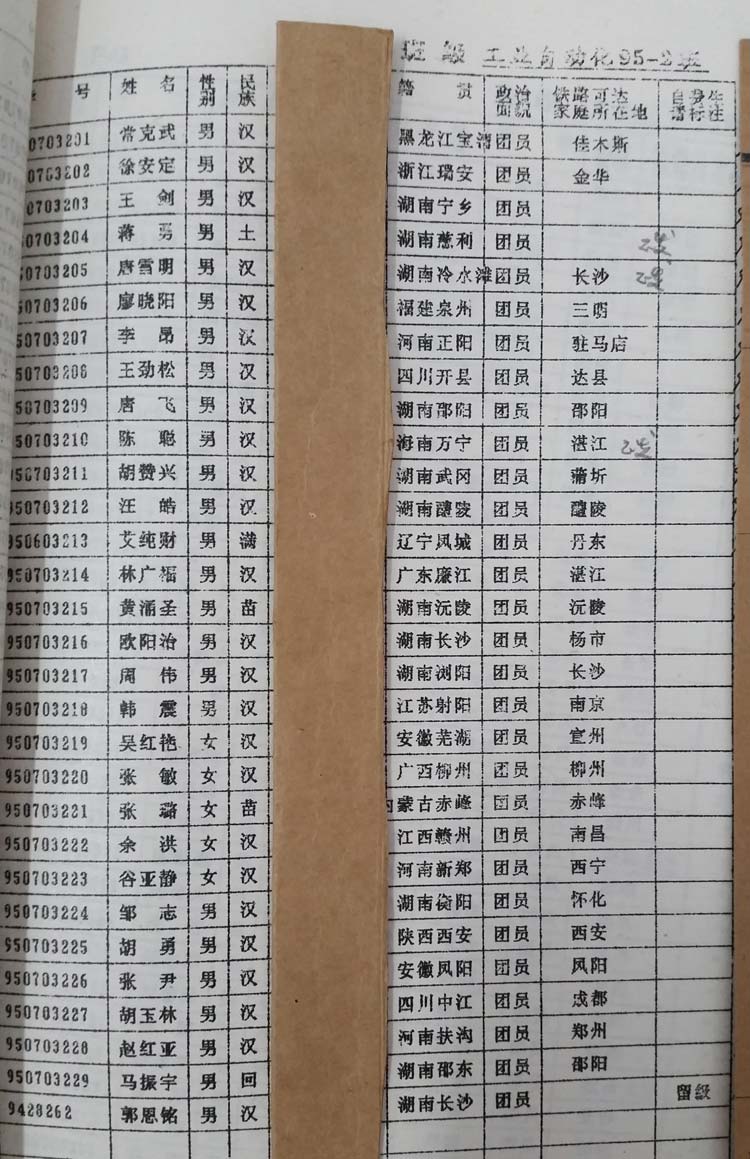 班级 工业自动化95-2班
号 姓名 性别 民族 籍贯 政治面貌 铁路可达家庭所在地
0703201 常克武 男 汉 黑龙江宝清 团员 佳木斯
0703202 徐安定 男 汉 浙江瑞安 团员 金华
0703203 王剑 男 汉 湖南宁乡 团员
50703204 蒋勇 男 土 湖南慈利 团员
50703205 唐雪明 男 汉 湖南冷水滩 团员 长沙
50703206 廖晓阳 男 汉 福建泉州 团员 三明
50703207 李昂 男 汉 河南正阳 团员 驻马店
50703208 王劲松 男 汉 四川开县 团员 达县
50703209 唐飞 男 汉 湖南邵阳 团员 邵阳
950703210 陈聪 男 汉 海南万宁 团员 湛江
950703211 胡赞兴 男 汉 湖南武冈 团员 蒲圻
950703212 汪皓 男 汉 湖南醴陵 团员 醴陵
950603213 艾纯财 男 满 辽宁凤城 团员 丹东
950703214 林广福 男 汉 广东廉江 团员 湛江
950703215 黄涌圣 男 苗 湖南沅陵 团员 沅陵
950703216 欧阳治 男 汉 湖南长沙 团员 杨市
950703217 周伟 男 汉 湖南浏阳 团员 长沙
950703218 韩震 男 汉 江苏射阳 团员 南京
950703219 吴红艳 女 汉 安徽芜湖 团员 宣州
950703220 张敏 女 汉 广西柳州 团员 柳州
950703221 张璐 女 苗 内蒙古赤峰 团员 赤峰
950703222 余洪 女 汉 江西赣州 团员 南昌
950703223 谷亚静 女 汉 河南新郑 团员 西宁
950703224 邹志 男 汉 湖南衡阳 团员 怀化
950703225 胡勇 男 汉 陕西西安 团员 西安
950703226 张尹 男 汉 安徽凤阳 团员 凤阳
950703227 胡玉林 男 汉 四川中江 团员 成都
950703228 赵红亚 男 汉 河南扶沟 团员 郑州
950703229 马振宇 男 回 湖南邵东 团员 邵阳
9428262 郭恩铭 男 汉 湖南长沙 团员 留级